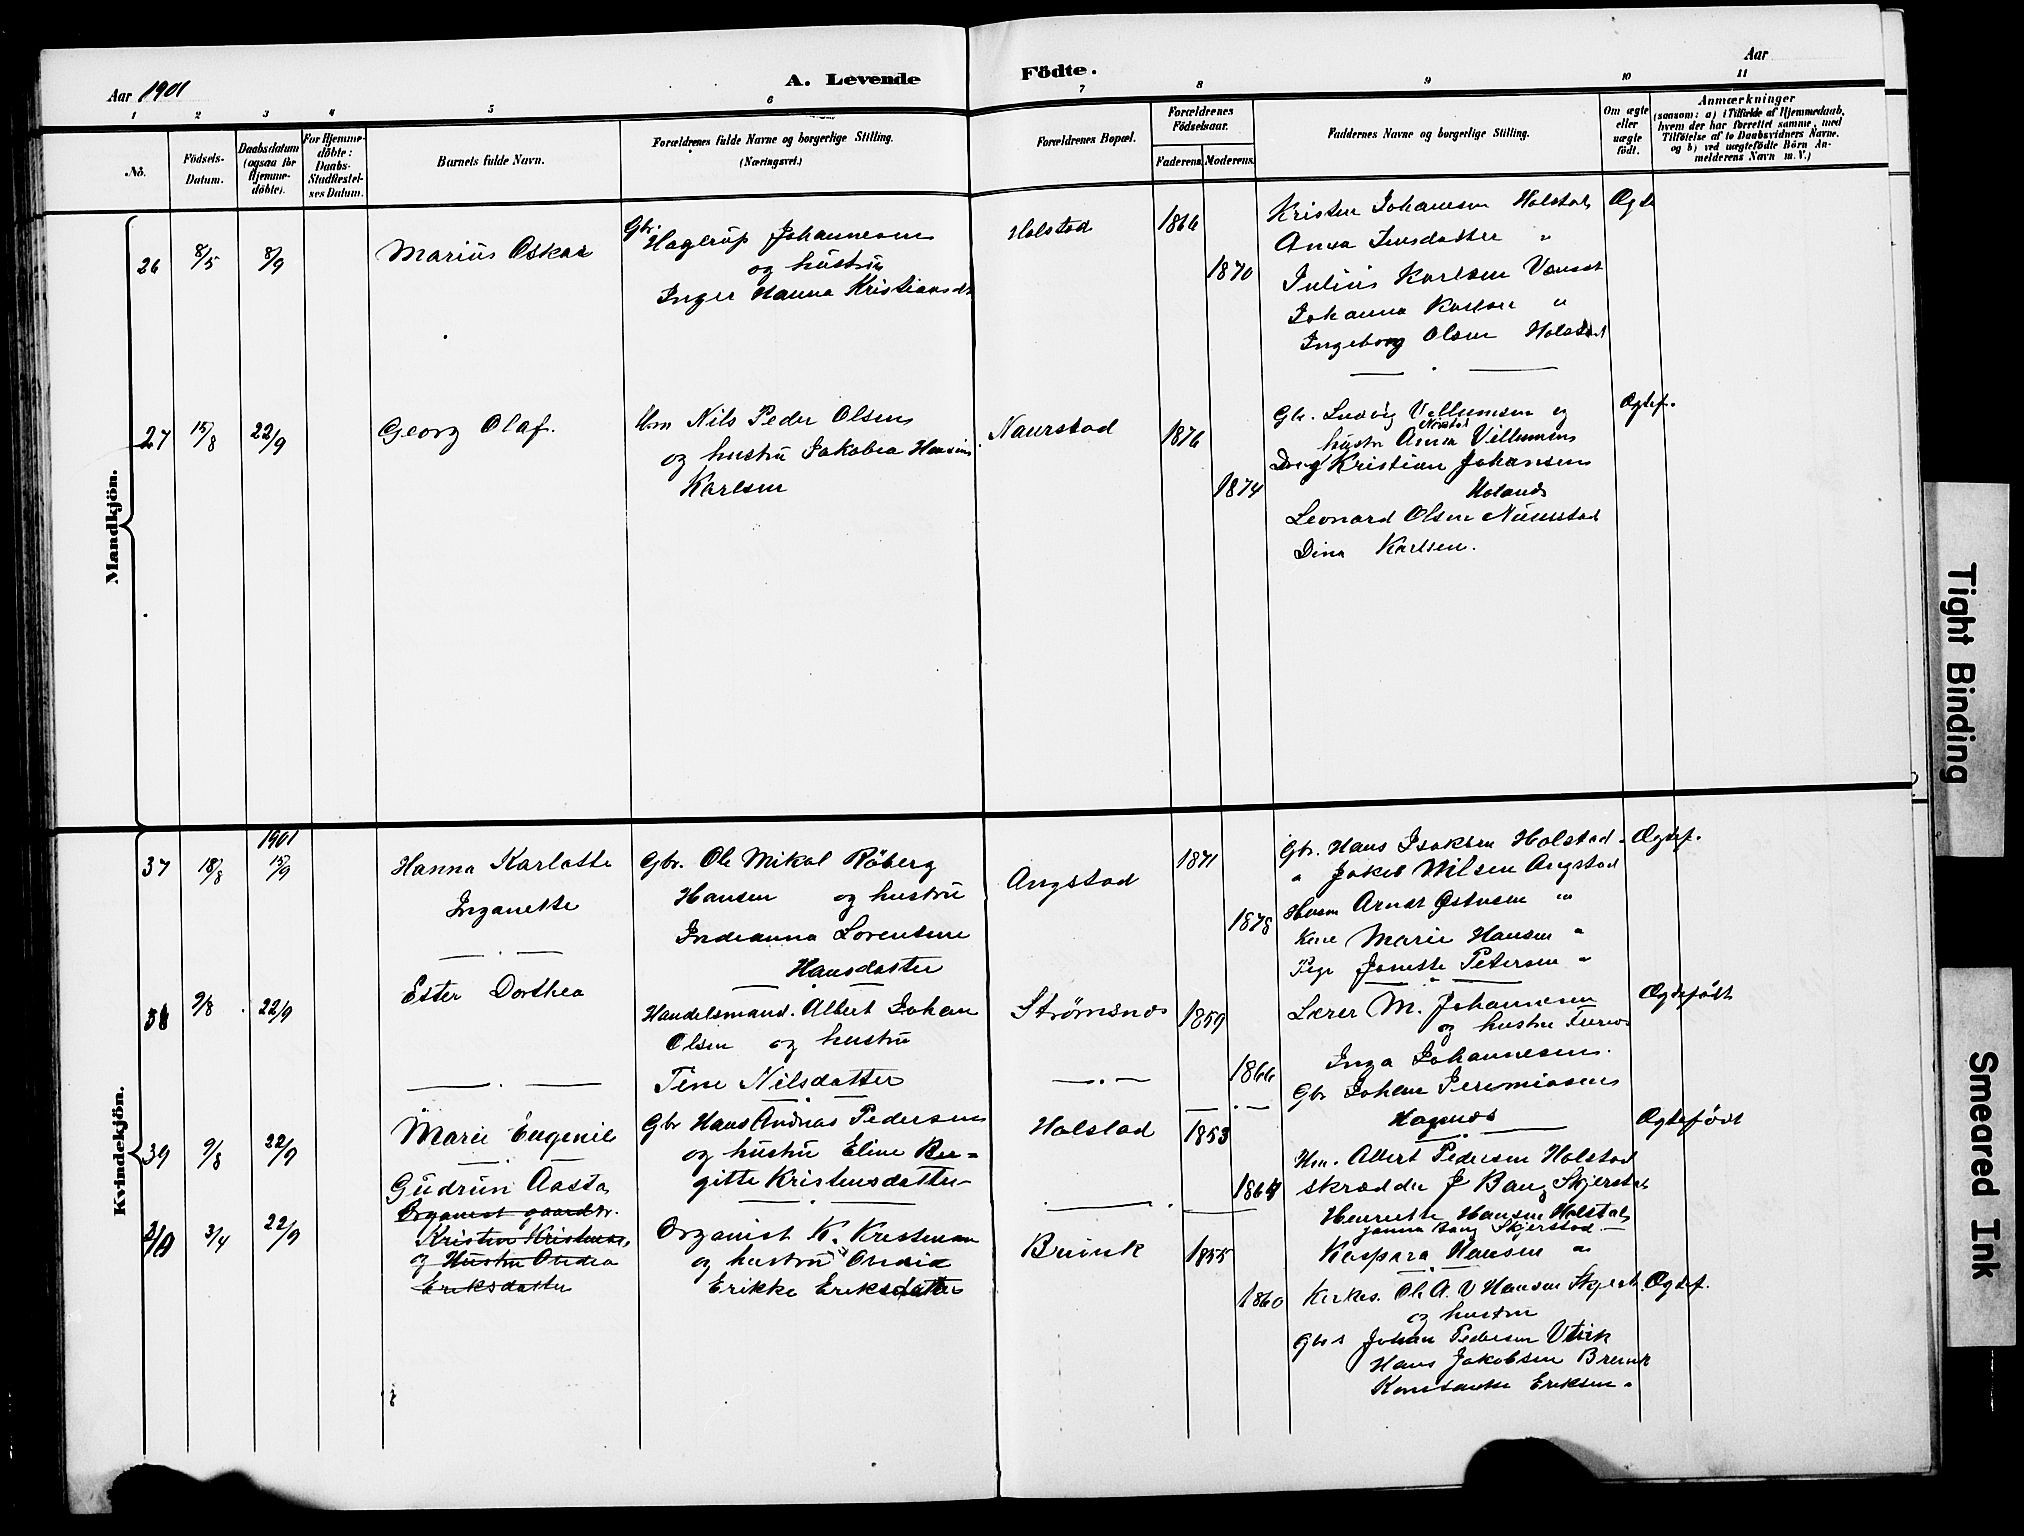 Aar 1901
A. Levende Födte.
Aar
1 2 3 4 5 6 7 8 9 10 11
No.
Födsels-Datum.
Daabsdatum (ogsaa for Hjemme-döbte).
For Hjemme-döbte: Daabs-Stadfæstel-ses Datum.
Barnets fulde Navn.
Forældrenes fulde Navne og borgerlige Stilling.
(Næringsvei.)
Forældrenes Bopæl.
Forældrenes Födselsaar.
Faderens. Moderens.
Faddernes Navne og borgerlige Stilling.
Om ægte eller uægte födt.
Anmærkninger
(saasom: a) i Tilfælde af Hjemmedaab,
hvem der har forrettet samme, med
Tilföielse af to Daabsvidners Navne.
og b) ved uægtefödte Börn An-
melderens Navn m. V.)
Mandkjön.
26 8/5 8/9 Marius Oskar
Gbr. Hagerup Johannesen
og hustru
Inger Hanna Kristiansdt
Holstad 1866
1870
Kristen Johansen Holstad
Anna Jensdatter "
Julius Karlsen
Johanna Karlsen "
Ingeborg Olsen Holstad
Ægte
27 15/8 22/9 Georg Olaf.
Hm Nils Peder Olsen
og hustru Jakobea
Karlsen
Naurstad 1876
1874
Gbr. Ludvig Villumsen og
hustr Anna Villumsen
Kristian Johansen
Leonard Olsen
Dina Karlsen.
Ægtef.
Kvindekjön.
1901
37 18/8 15/9 Hanna Karlotte
Inganette
Gbr. Ole Mikal Röberg
Hansen og hustru
Indianna Lorentsine
Hansdatter
Angstad 1871
1878
Gbr. Hans Isaksen Holstad
" Jakob Nilsen Angstad
Husm Arndt Østensen "
Marie Hansen "
Pige Janette Petersen "
Ægtef.
38 9/8 22/9 Ester Dorthea
Handelsmand. Albert Johan
Olsen og hustru
Tine Nilsdatter
Strømsnes 1859
1866
Lærer M. Johannesen
og hustru
Inga Johannesen.
Gbr Johan Jeremiasen
Ægtefödt
39 9/8 22/9 Marie Eugenie
Gbr Hans Andreas Pedersen
og hustru Eline Ber-
gitte Kristensdatter
Holstad 1853
1864
Hm. Albert Pedersen Holstad
skrædder J Bang Skjerstad
Henriette Hansen Holstad
Janna Bang Skjerstad
Kaspara Hansen "
Ægtefödt
Gudrun Aasta
Organist gaardbr.
Kristen Kristensen
og Hustru Ovedia
Eriksdatter
3/4 22/9
Organist K. Kristensen
og hustru Ovedia
Erikke Eriksdatter
1855
1860
Kirkes. Ole A. V Hansen Skjerst.
og hustru
Johan Pedersen
Hans Jakobsen
Konstanse Eriksen "
Ægtef.
Tight Binding
Smeared Ink